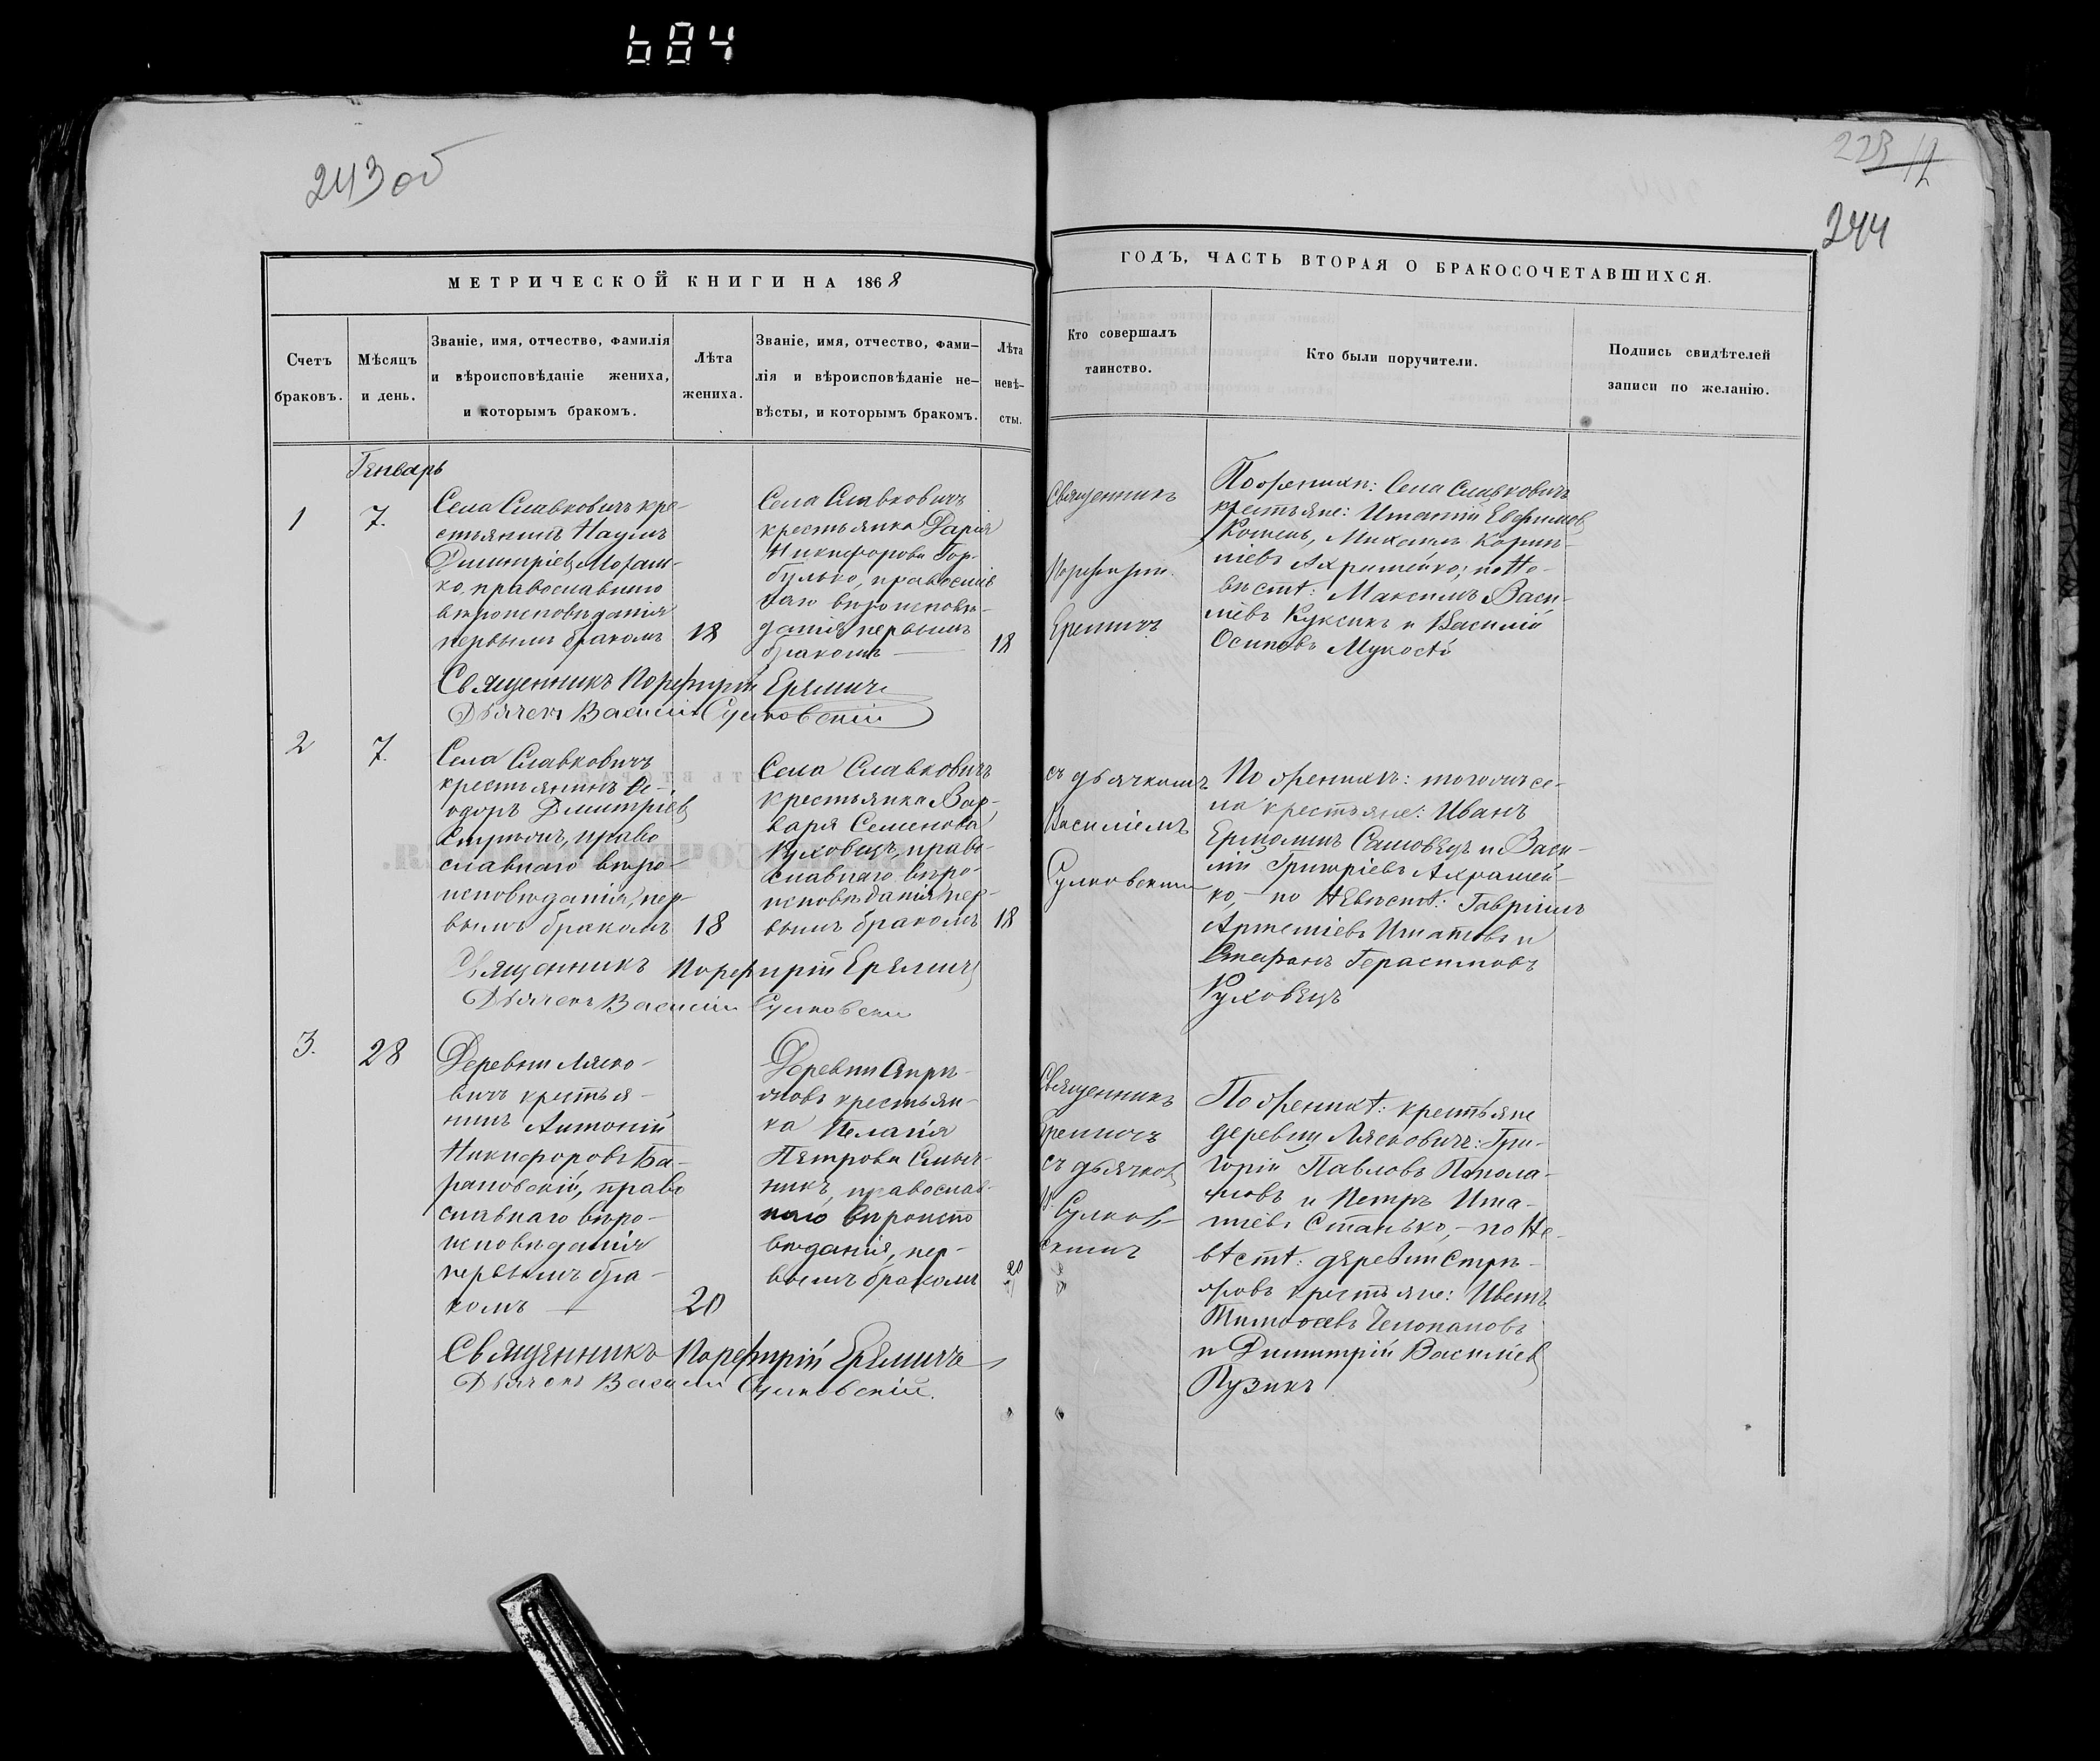 684
243 об
223 / 12
244
МЕТРИЧЕСКОЙ КНИГИ НА 1868
ГОДЪ, ЧАСТЬ ВТОРАЯ О БРАКОСОЧЕТАВШИХСЯ.
Счетъ
браковъ.
Мѣсяцъ
и день.
Званіе, имя, отчество, фамилія
и вѣроисповѣданіе жениха,
и которымъ бракомъ.
Лѣта
жениха.
Званіе, имя, отчество, фами–
лія и вѣроисповѣданіе не–
вѣсты, и которымъ бракомъ.
Лѣта
невѣ–
сты.
Кто совершалъ
таинство.
Кто были поручители.
Подпись свидѣтелей
записи по желанію.
Генварь
1
7.
Села Славковичъ кре-
стьянинъ Наумъ
Димитріевъ
ко, православнаго
вѣроисповѣданія
первымъ бракомъ
18
Села Славковичъ
крестьянка Дарія
Никифорова Гор-
булько, православ
наго вѣроисповѣ-
данія первымъ
бракомъ
18
Священникъ
Порфирій
Еремичъ
По женихѣ: Села Славковичъ
крестьяне: Игнатій Евфимовъ
Михаилъ Корни-
ліевъ Ахрамейко; по Не-
вѣстѣ: Максимъ Васи-
ліевъ Куксикъ и Василій
Осиповъ
Священникъ Порфирій Еремичъ
Дьячекъ Василій Сулковскій
2
7.
Села Славковичъ
крестьянинъ Ѳе-
одоръ Димитріевъ
право
славнаго вѣро-
исповѣданія, пер-
вымъ бракомъ
18
Села Славковичъ
крестьянка Вар-
вара Семенова
Руховецъ, право-
славнаго вѣро-
исповѣданія пер-
вымъ бракомъ
18
съ дьячкомъ
Василіемъ
Сулковскимъ
По женихѣ: тогожъ се-
ла крестьяне: Иванъ
Ермолинъ Самовецъ и Васи-
лій Григоріевъ Ахрамей-
ко, – по Невѣстѣ: Гавріилъ
Артеміевъ Игнатовъ и
Стефанъ Герасимовъ
Руховецъ
Священникъ Порфирій Еремичъ
Дьячекъ Василій Сулковскій
3.
28
Деревни Ляско-
вичъ крестья-
нинъ Антоній
Никифоровъ Ба-
рановскій, право
славнаго вѣро-
исповѣданія
первымъ бра-
комъ
20
Деревни
крестьян-
ка Пелагія
Петрова
никъ, православ-
наго вѣроиспо
вѣданія, пер-
вымъ бракомъ
20
Священникъ
Еремичъ
съ дьячкомъ
В. Сулков-
скимъ
По женихѣ: крестьяне
деревни Лясковичъ: Гри-
горій Павловъ
и Петръ Игна-
тіевъ Станько, – по Не-
вѣстѣ: деревни
крестьяне: Иванъ
Тимоѳеевъ
и Димитрій Василіевъ
Пузикъ
Священникъ Порфирій Еремичъ
Дьячекъ Василій Сулковскій.